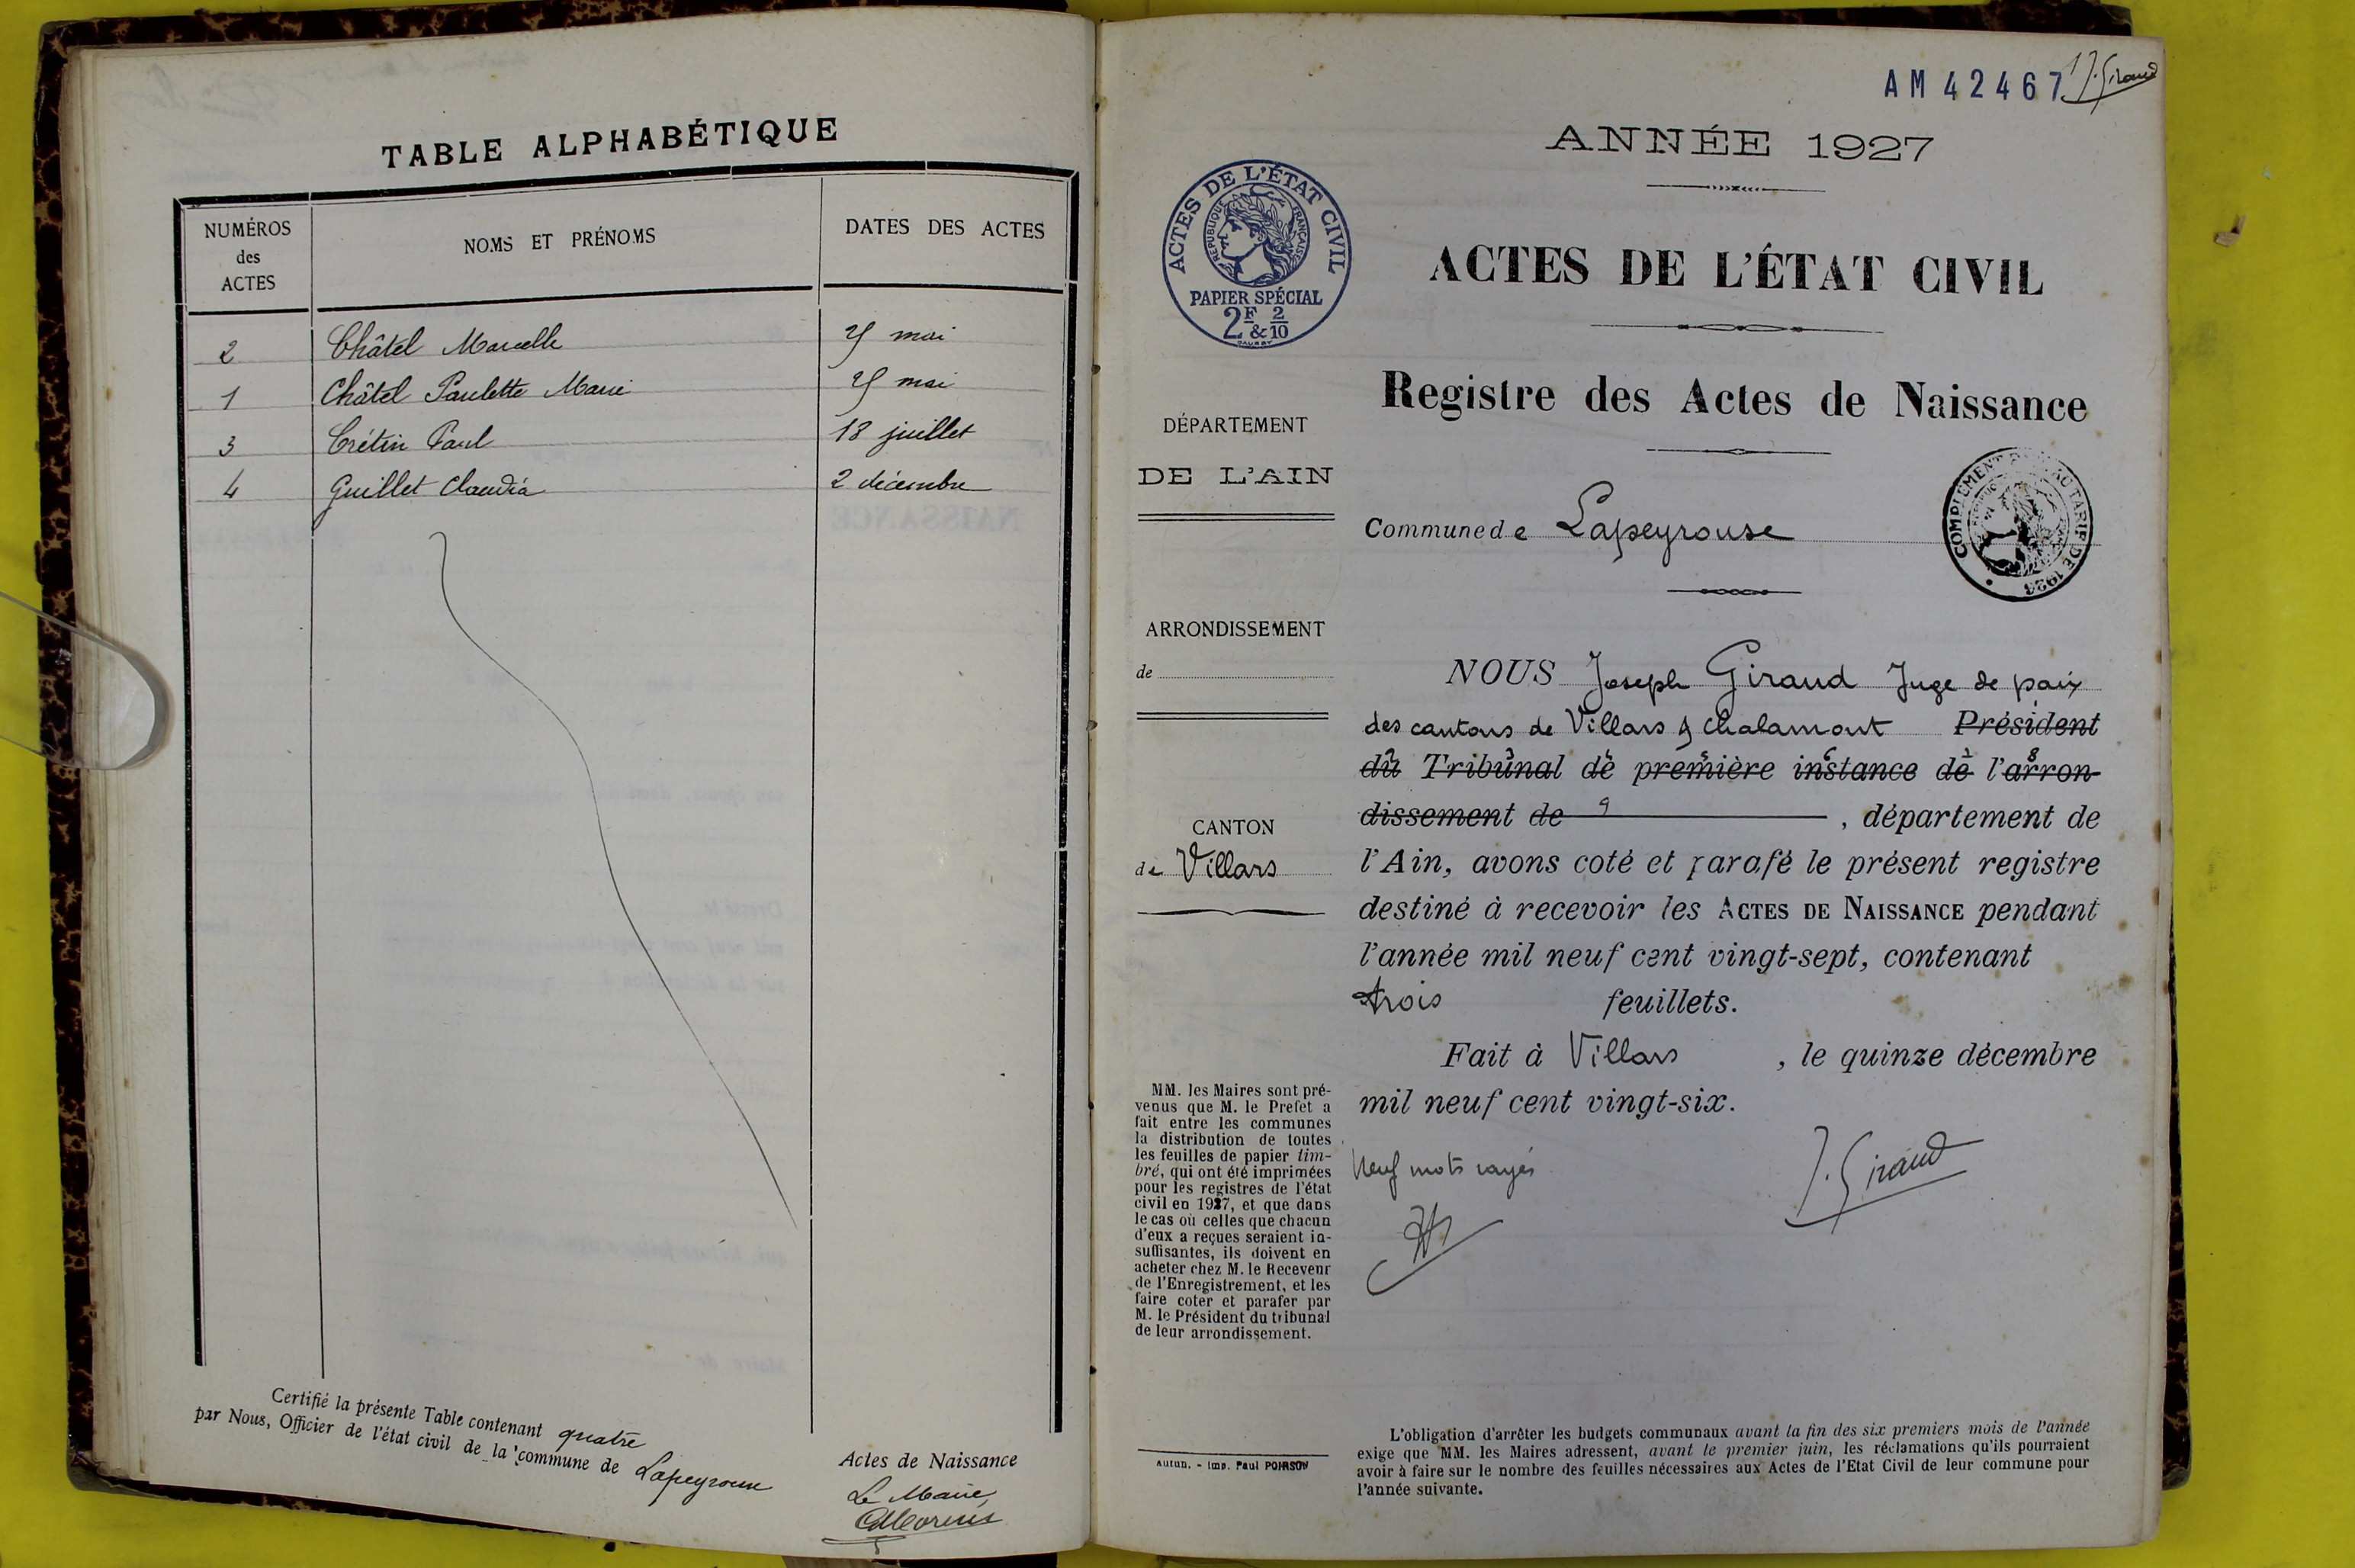 TABLE ALPHABÉTIQUE
NUMÉROS
des
ACTES
NOMS ET PRÉNOMS
DATES DES ACTES
2 Châtel Marcelle mai
1 Châtel Paulette Marie mai
3 Crétin Paul 18 juillet
4 Guillet Claudia 2 décembre
Certifié la présente Table contenant quatre
par Nous, Officier de l'état civil de la commune de Lapeyrouse
Actes de Naissance
Le Maire,
AM 42467 J. Giraud
ANNÉE 1927
ACTES DE L'ÉTAT CIVIL
RÉPUBLIQUE FRANÇAISE
PAPIER SPÉCIAL
2F & 2/10
ACTES DE L'ÉTAT CIVIL
Registre des Actes de Naissance
DÉPARTEMENT
DE L'AIN
Commune de Lapeyrouse
COMPLÉMENT AU TARIF DE
ARRONDISSEMENT
de
CANTON
de Villars
NOUS Joseph Giraud Juge de paix
des cantons de Villars & Chalamont Président
du Tribunal de première instance de l'arron-
dissement de 9 , département de
l'Ain, avons coté et parafé le présent registre
destiné à recevoir les ACTES DE NAISSANCE pendant
l'année mil neuf cent vingt-sept, contenant
trois feuillets.
Fait à Villars , le quinze décembre
mil neuf cent vingt-six.
Neuf mots rayés
J. Giraud
MM. les Maires sont pré-
venus que M. le Prefet a
fait entre les communes
la distribution de toutes
les feuilles de papier tim-
bré, qui ont été imprimées
pour les registres de l'état
civil en 1927, et que dans
le cas où celles que chacun
d'eux a reçues seraient in-
suffisantes, ils doivent en
acheter chez M. le Receveur
de l'Enregistrement, et les
faire coter et parafer par
M. le Président du tribunal
de leur arrondissement.
Autun. - Imp. Paul POIRSON
L'obligation d'arrêter les budgets communaux avant la fin des six premiers mois de l'année
exige que MM. les Maires adressent, avant le premier juin, les réclamations qu'ils pourraient
avoir à faire sur le nombre des feuilles nécessaires aux Actes de l'Etat Civil de leur commune pour
l'année suivante.